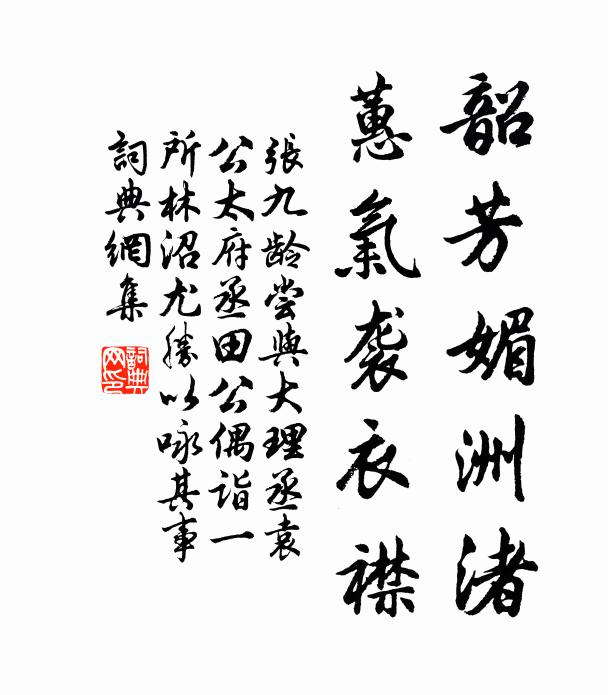 韶芳媚洲渚
蕙氣袭衣襟
張九龄尝與大理丞袁
公太府丞田公偶诣一
所林沼尤勝以咏其事
詞典網集
詞典網印